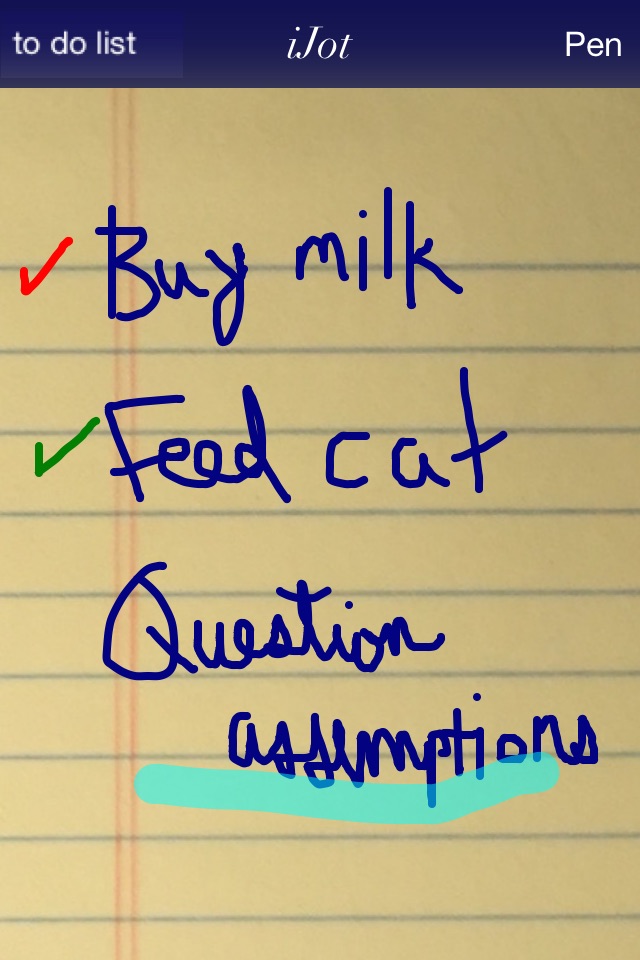 to do list iJot Pen
Buy milk
Feed cat
Question
assumptions